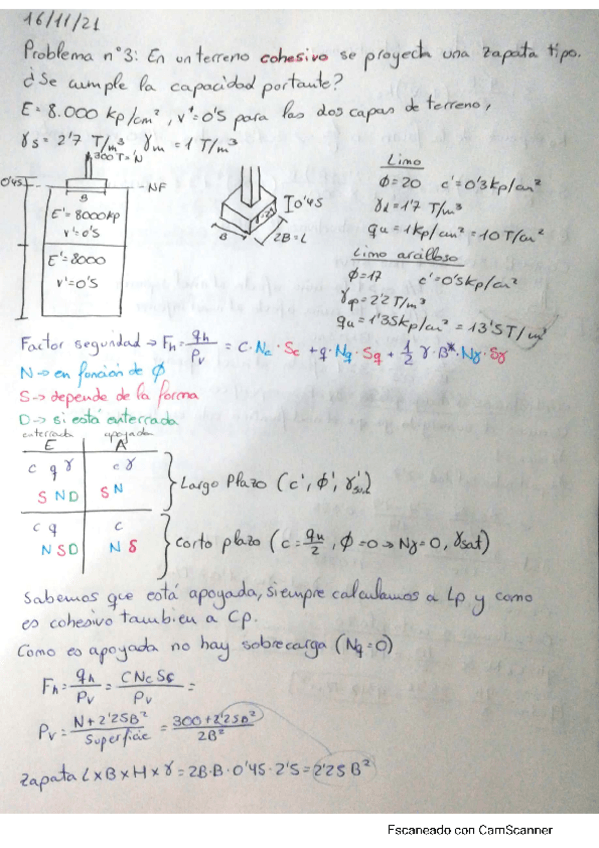 16/11/21
Problema n°3: En un terreno cohesivo se proyecta una zapata tipo.
¿Se cumple la capacidad portante?
E = 8.000 kp/cm², v' = 0'5 para las dos capas de terreno,
γs = 2'7 T/m³, γm = 1 T/m³
300 T = N
0'45
NF
B
E' = 8000 kp
v' = 0'5
E' = 8000
v' = 0'5
0'45
B
2B = L
Limo
ϕ = 20 c' = 0'3 kp/cm²
γd = 1'7 T/m³
qu = 1 kp/cm² = 10 T/m²
Limo arcilloso
ϕ = 17 c' = 0'5 kp/cm²
γap = 2'2 T/m³
qu = 1'35 kp/cm² = 13'5 T/m²
Factor seguridad → Fh = qh/Pv = c · Nc · Sc + q · Nq · Sq + 1/2 γ · B* · Nγ · Sγ
N → en función de ϕ
S → depende de la forma
D → si está enterrada
enterrada apoyada
E A
c q γ c γ
S N D S N
Largo Plazo (c', ϕ', γ'sat)
c q c
N S D N S
Corto plazo (c = qu/2, ϕ = 0 → Nγ = 0, γsat)
Sabemos que está apoyada, siempre calculamos a Lp y como
es cohesivo tambien a Cp.
Como es apoyada no hay sobrecarga (Nq = 0)
Fh = qh/Pv = C Nc Sc/Pv =
Pv = N + 2'25B²/Superficie = 300 + 2'25B²/2B²
Zapata L x B x H x γ = 2B · B · 0'45 · 2'5 = 2'25 B²
Escaneado con CamScanner